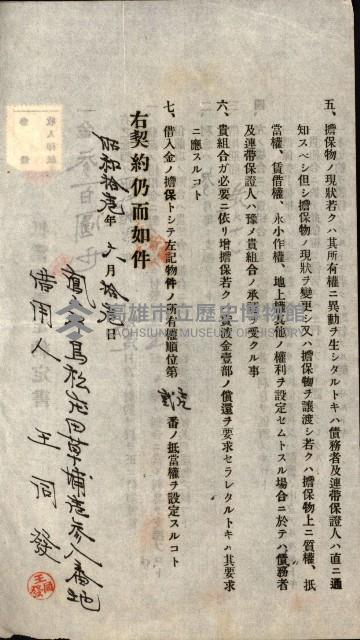 五、擔保物ノ現狀若クハ其所有權ニ異動ヲ生シタルトキハ債務者及連帶保證人ハ直ニ通
知スベシ但シ擔保物ノ現狀ヲ變更シ又ハ擔保物ヲ讓渡シ若クハ擔保物上ニ質權、抵
當權、賃借權、永小作權、地上權其他ノ權利ヲ設定セムトスル場合ニ於テハ債務者
及連帶保證人ハ豫メ貴組合ノ承諾ヲ受クル事
六、貴組合ガ必要ニ依リ增擔保若クハ貸渡金壹部ノ償還ヲ要求セラレタルトキハ其要求
ニ應スルコト
七、借入金ノ擔保トシテ左記物件ノ所有權順位第
番ノ抵當權ヲ設定スルコト
右契約仍而如件
昭和拾壱年六月拾壱日
鳥松庄四草埔壱參八番地
借用人 王同發
高雄市立歷史博物館
KAOHSIUNG MUSEUM OF HISTORY